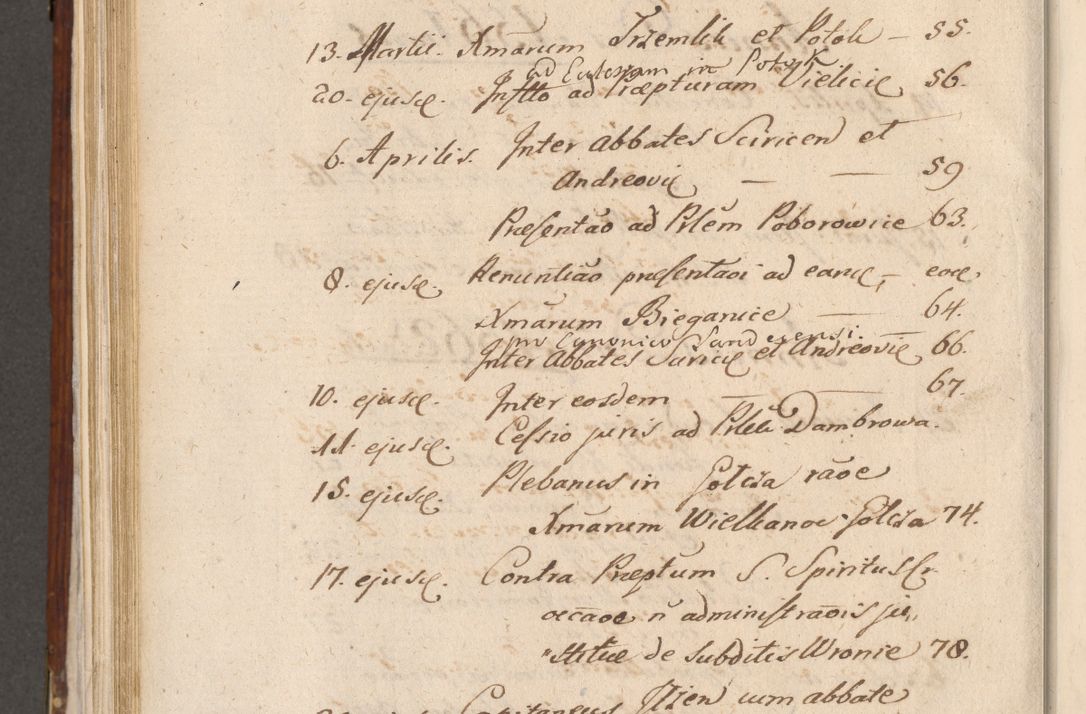 13. Martii. Xmarum Trzemlik et Potok — 55.
ad Eccksiam in Potok
20. ejusd. Instto ad Præpturam Vielicie 56.
6. Aprilis. Inter Abbates Sciricen et
Andreovie — — 59
Præsentão ad Plem Poborowice 63.
8. ejusd. Renuntião præsentaoi ad eand, — eod.
Xmarum Bieganice — 64.
pro Canonico Sand
Inter Abbates Siricie et Andreovie 66.
10. ejusd. Inter eosdem — — 67.
11. ejusd. Cessio juris ad Plem Dambrowa.
15. ejusd. Plebanus in Golcza raõe
Xmarum Wielkanoc Golcza 74.
17. ejusd. Contra Præptum S. Spiritus Cr
occaõe ñ administraõis ju„
„stitiæ de subditis Wronie 78.
cum abbate